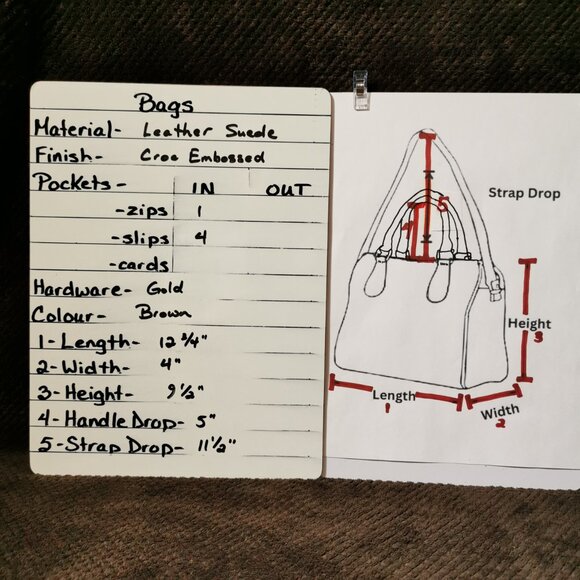 Bags
Material- Leather Suede
Finish- Croc Embossed
Pockets- IN OUT
-zips 1
-slips 4
-cards
Hardware- Gold
Colour- Brown
1-Length- 12 3/4"
2-Width- 4"
3-Height- 9 1/2"
4-Handle Drop- 5"
5-Strap Drop- 11 1/2"
Strap Drop
5
4
Height
3
Length
1
Width
2